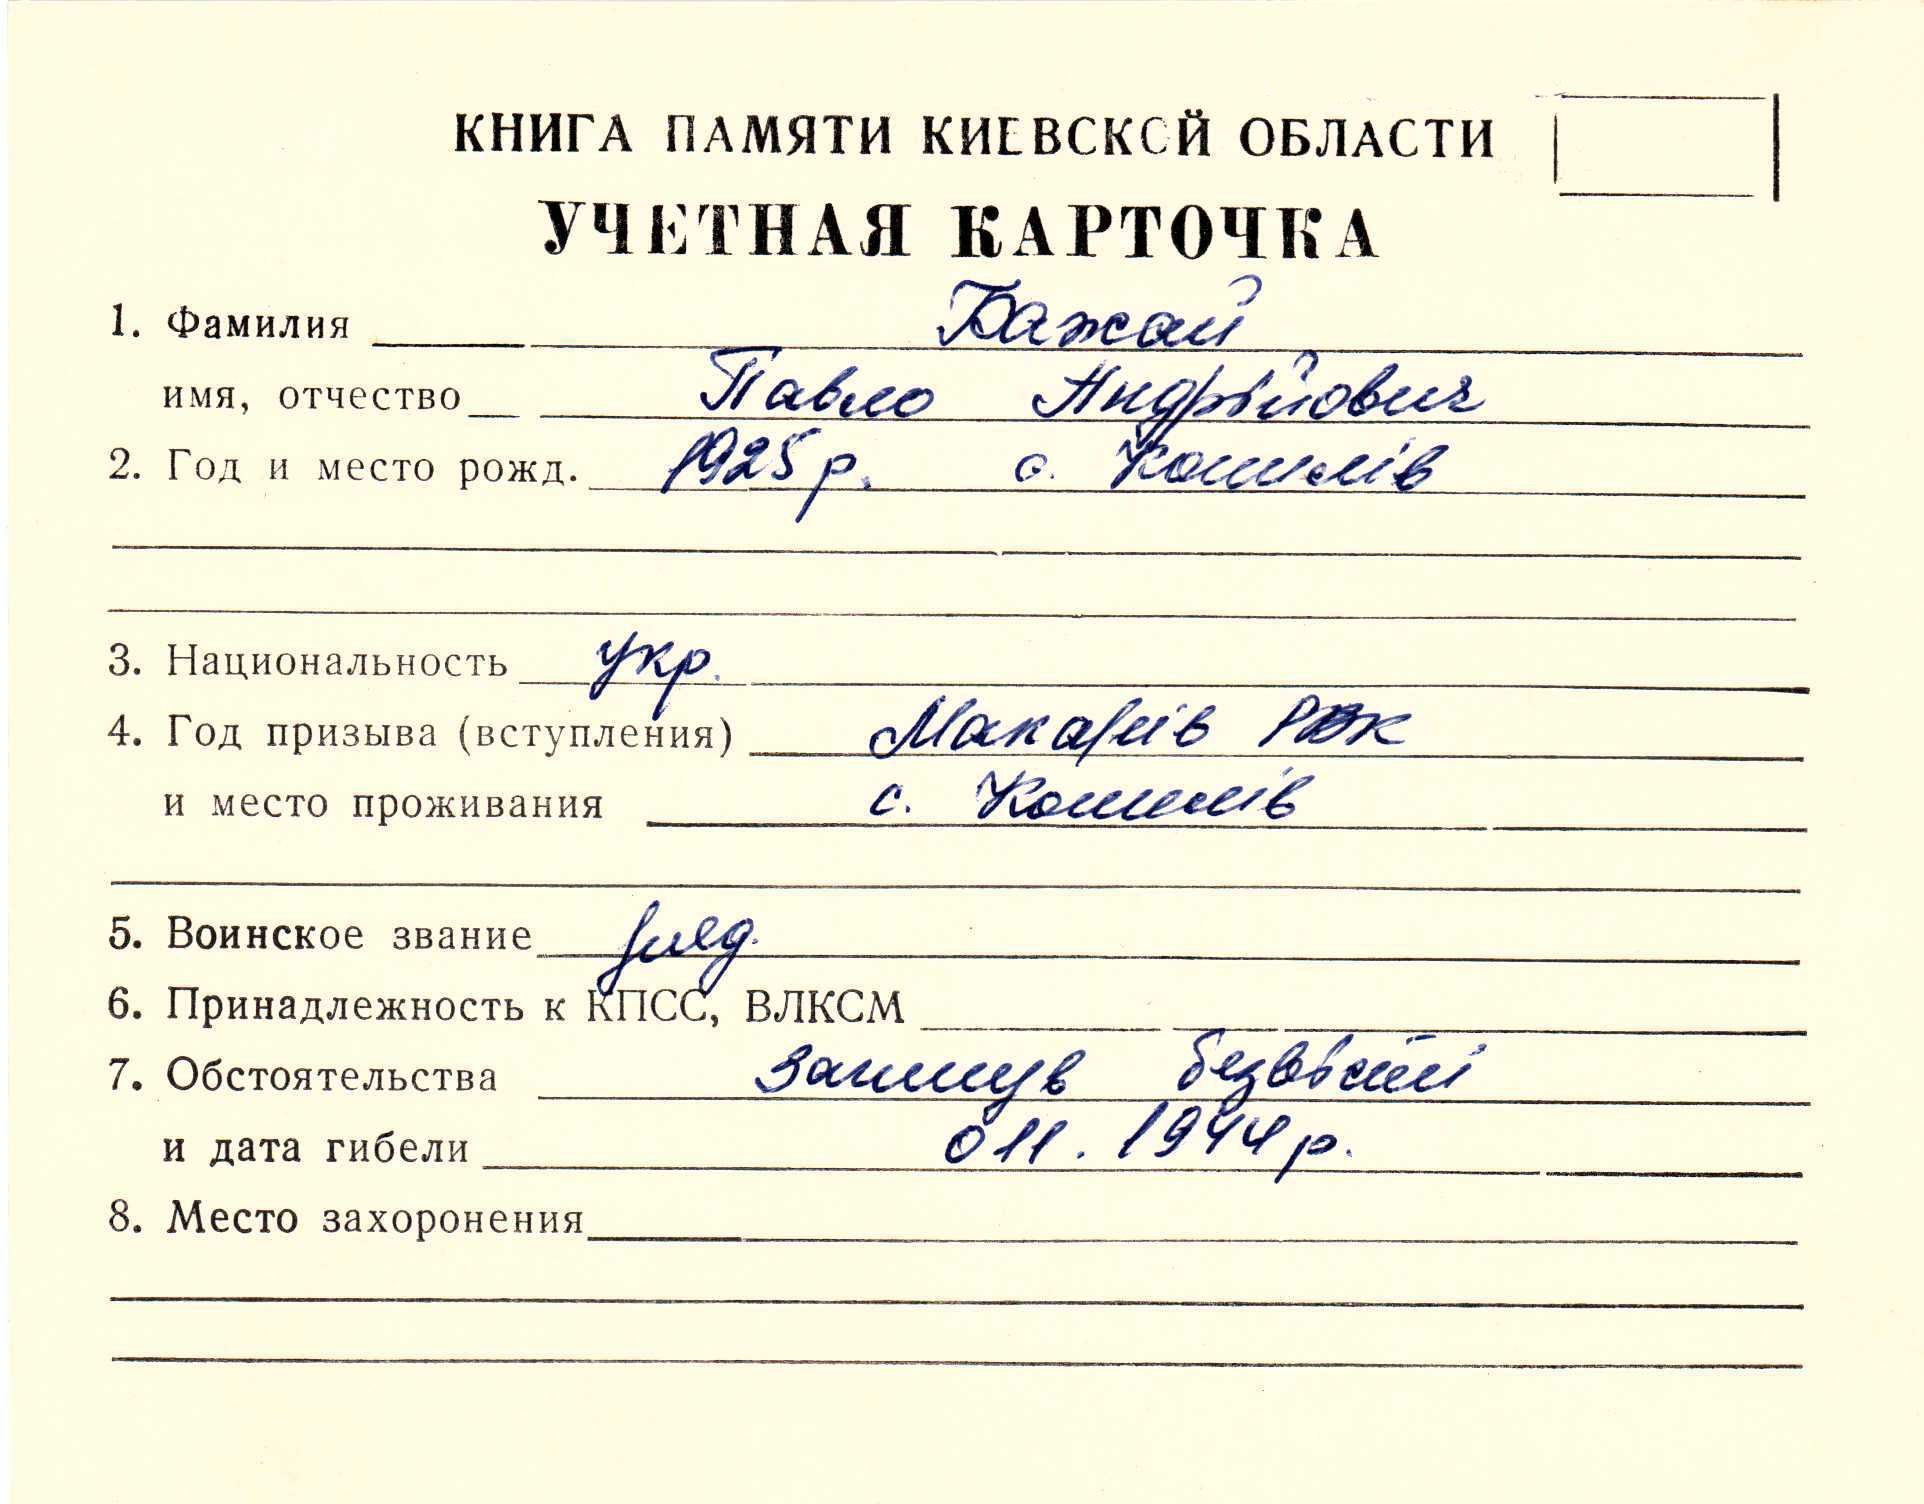 КНИГА ПАМЯТИ КИЕВСКОЙ ОБЛАСТИ
УЧЕТНАЯ КАРТОЧКА
1. Фамилия Бажай
имя, отчество Павло Андрійович
2. Год и место рожд. 1925 р. с. Кошилів
3. Национальность укр.
4. Год призыва (вступления) Макарів РВК
и место проживания с. Кошилів
5. Воинское звание
6. Принадлежность к КПСС, ВЛКСМ
7. Обстоятельства Загинув безвісті
и дата гибели 011. 1944 р.
8. Место захоронения